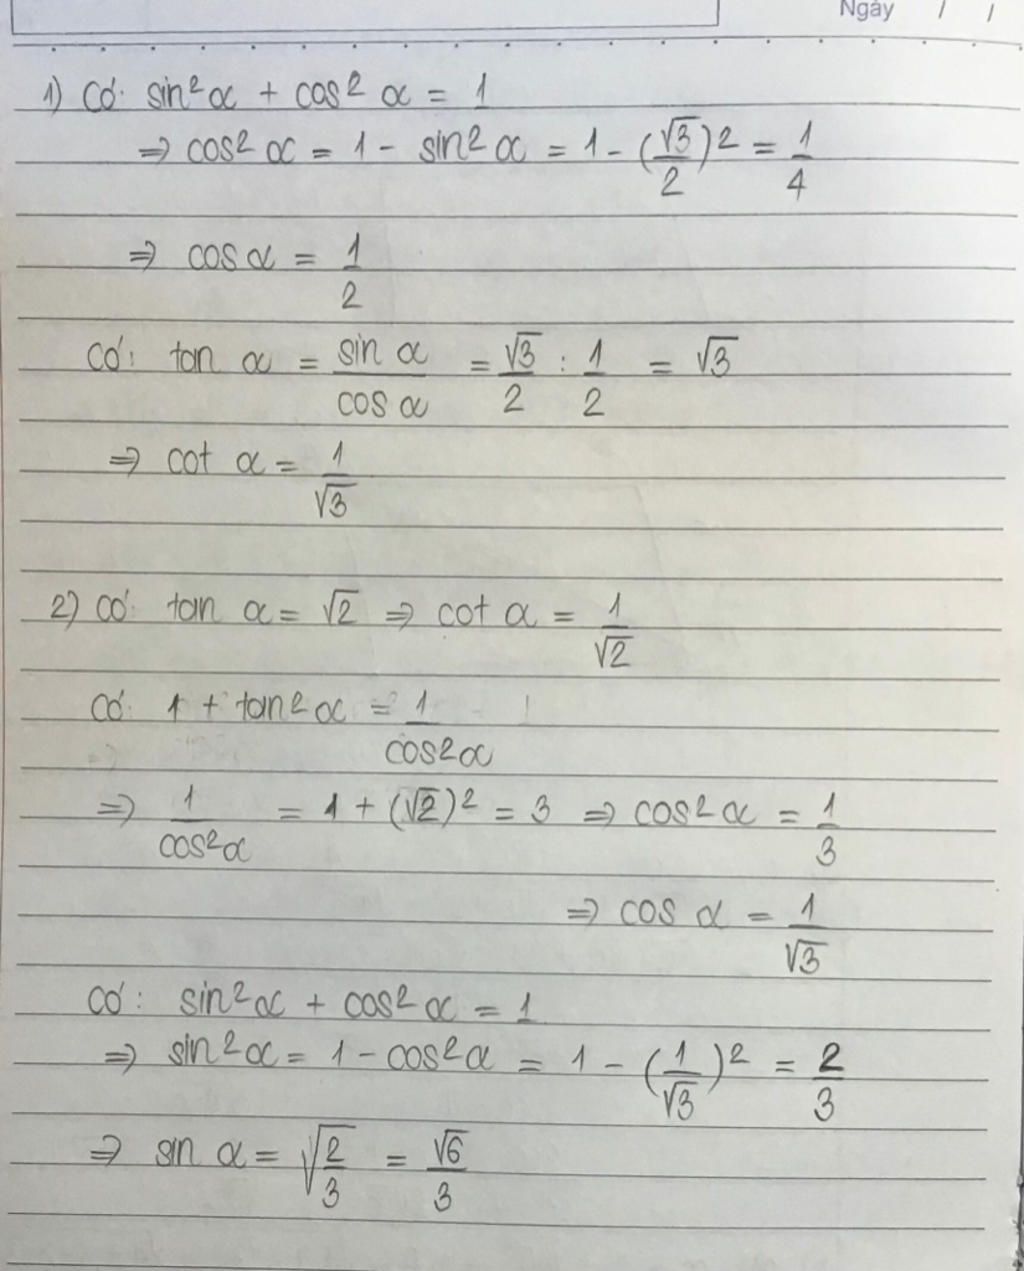 Ngày / /
1) Có: sin²α + cos²α = 1
⇒ cos²α = 1 - sin²α = 1 - (√3/2)² = 1/4
⇒ cos α = 1/2
Có: tan α = sin α/cos α = √3/2 : 1/2 = √3
⇒ cot α = 1/√3
2) Có: tan α = √2 ⇒ cot α = 1/√2
Có: 1 + tan²α = 1/cos²α
⇒ 1/cos²α = 1 + (√2)² = 3 ⇒ cos²α = 1/3
⇒ cos α = 1/√3
Có: sin²α + cos²α = 1
⇒ sin²α = 1 - cos²α = 1 - (1/√3)² = 2/3
⇒ sin α = √(2/3) = √6/3